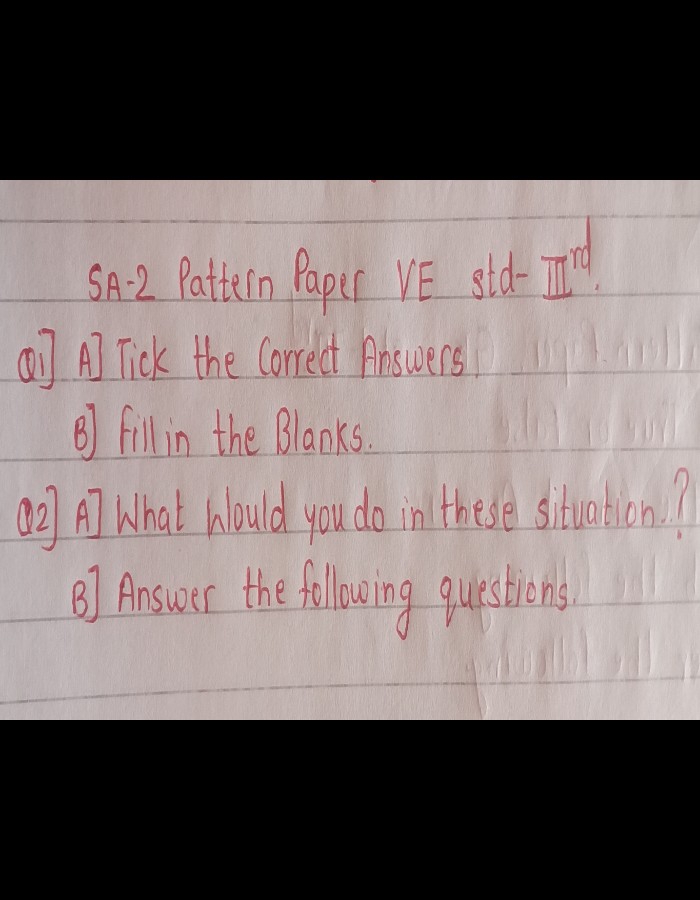 SA-2 Pattern Paper VE std- III rd.
Q1] A] Tick the Correct Answers.
B] Fill in the Blanks.
Q2] A] What Would you do in these situation.?
B] Answer the following questions.